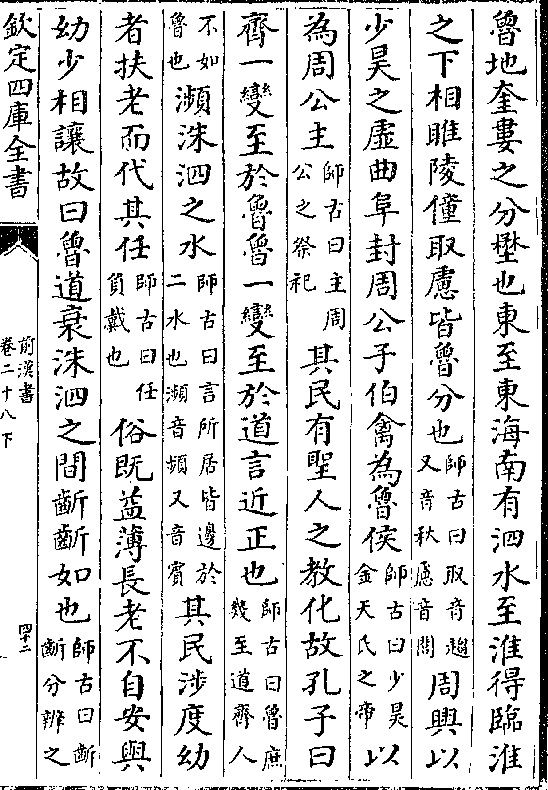 魯地奎婁之分壄也東至東海南有泗水至淮得臨淮
之下相睢陵僮取慮皆魯分也師古曰取音趨又音秋慮音閭周興以
少昊之虛曲阜封周公子伯禽為魯侯師古曰少昊金天氏之帝以
為周公主師古曰主周公之祭祀其民有聖人之教化故孔子曰
齊一變至於魯魯一變至於道言近正也師古曰魯庶幾至道齊人
不如魯也瀕洙泗之水師古曰言所居皆邊於二水也瀕音頻又音賓其民涉度幼
者扶老而代其任師古曰任負戴也俗既益薄長老不自安與
幼少相讓故曰魯道衰洙泗之間齗齗如也師古曰齗齗分辨之
欽定四庫全書
前漢書
卷二十八下
四十二